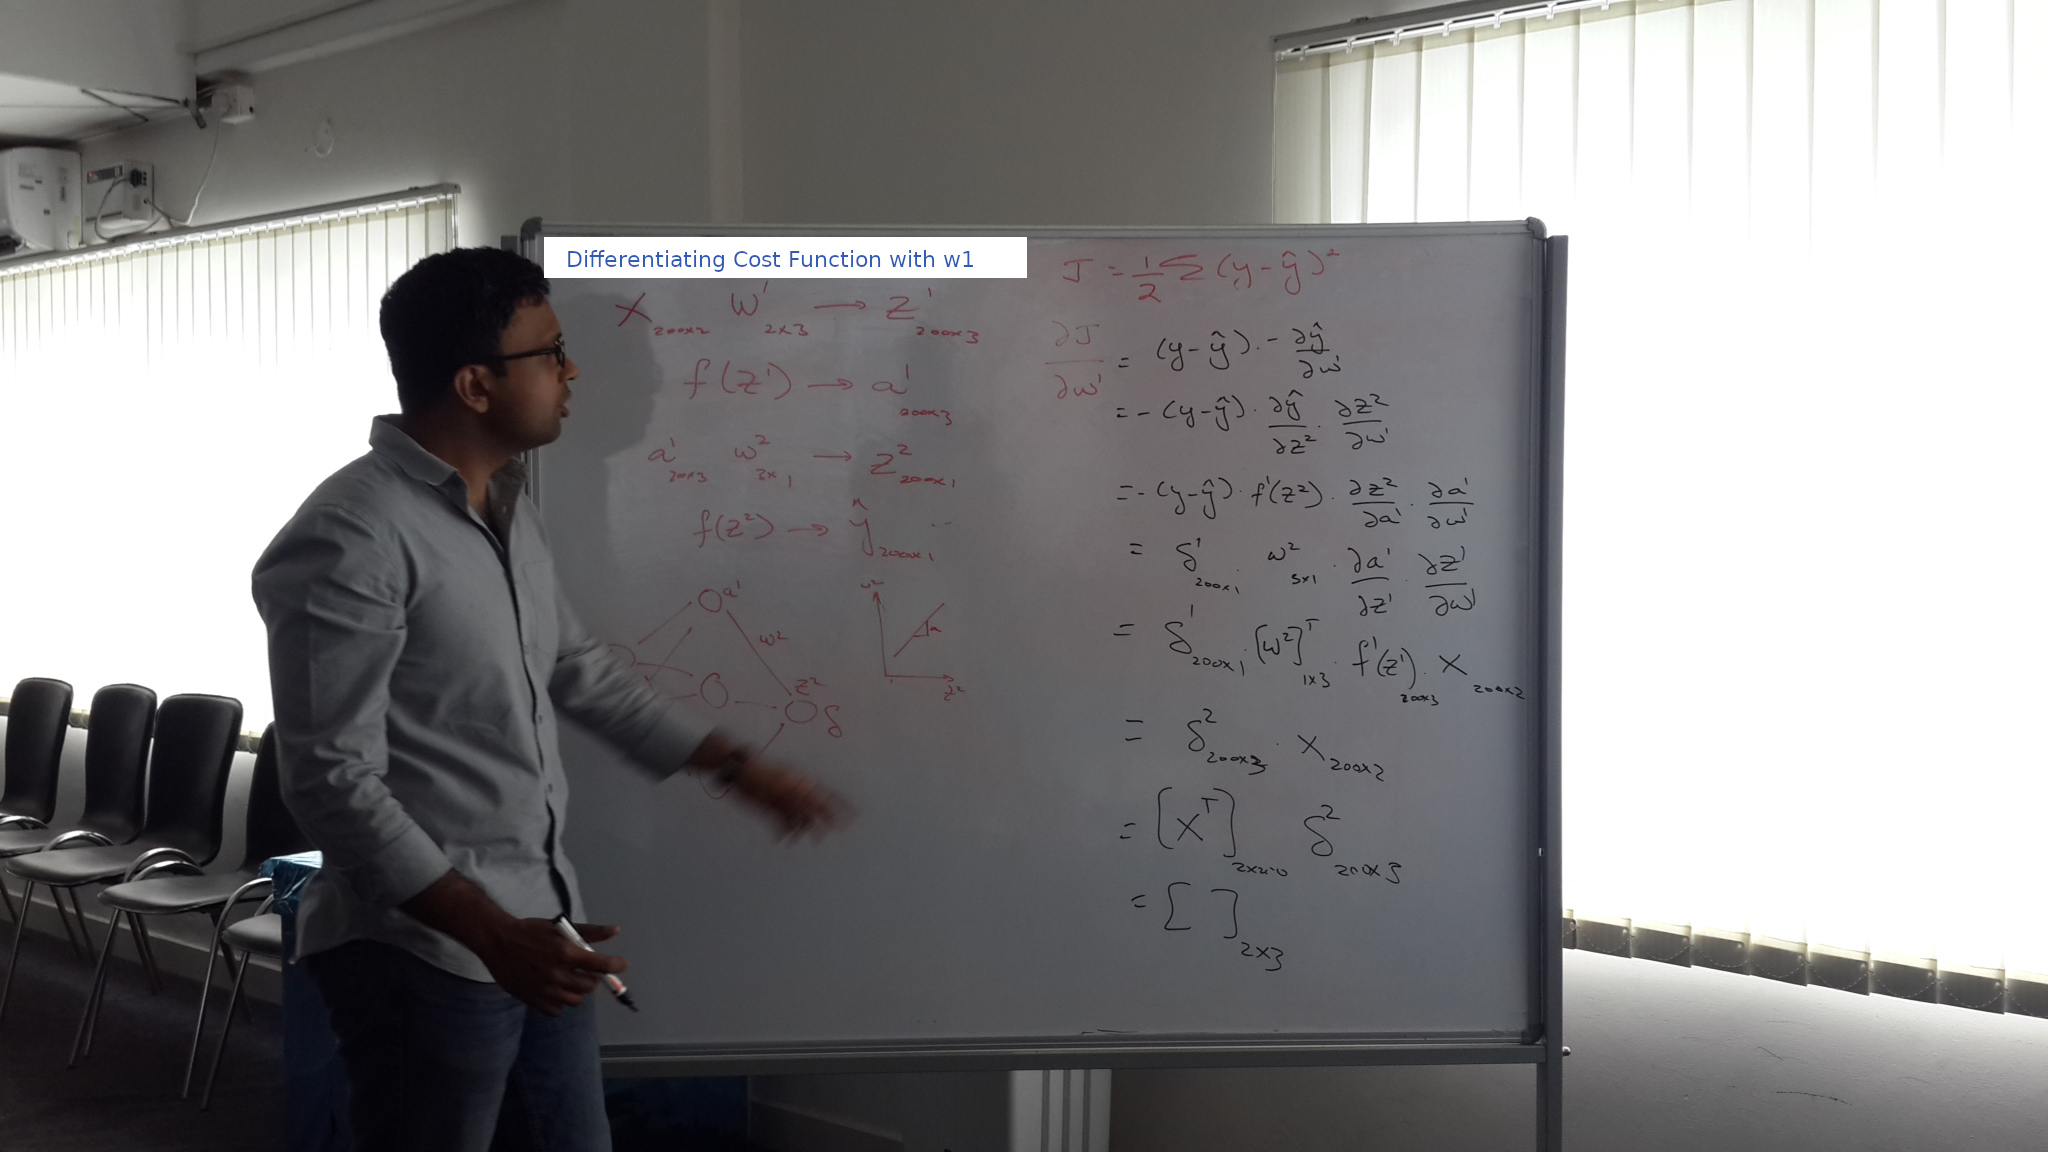 Differentiating Cost Function with w1
X 200x2 W¹ 2x3 → Z¹ 200x3
f(Z¹) → a¹ 200x3
a¹ 200x3 w² 3x1 → Z² 200x1
f(Z²) → ŷ 200x1
a¹
w²
Z²
δ
w²
Z²
J = 1/2 Σ (y - ŷ)²
∂J/∂w¹ = (y - ŷ) . - ∂ŷ/∂w¹
= - (y - ŷ) . ∂ŷ/∂Z² . ∂Z²/∂w¹
= - (y - ŷ) . f'(Z²) . ∂Z²/∂a¹ . ∂a¹/∂w¹
= δ¹ 200x1 . w² 3x1 . ∂a¹/∂Z¹ . ∂Z¹/∂w¹
= δ¹ 200x1 . [w²]ᵀ 1x3 . f'(Z¹) 200x3 . X 200x2
= δ² 200x3 . X 200x2
= [Xᵀ] 2x200 δ² 200x3
= [ ] 2x3